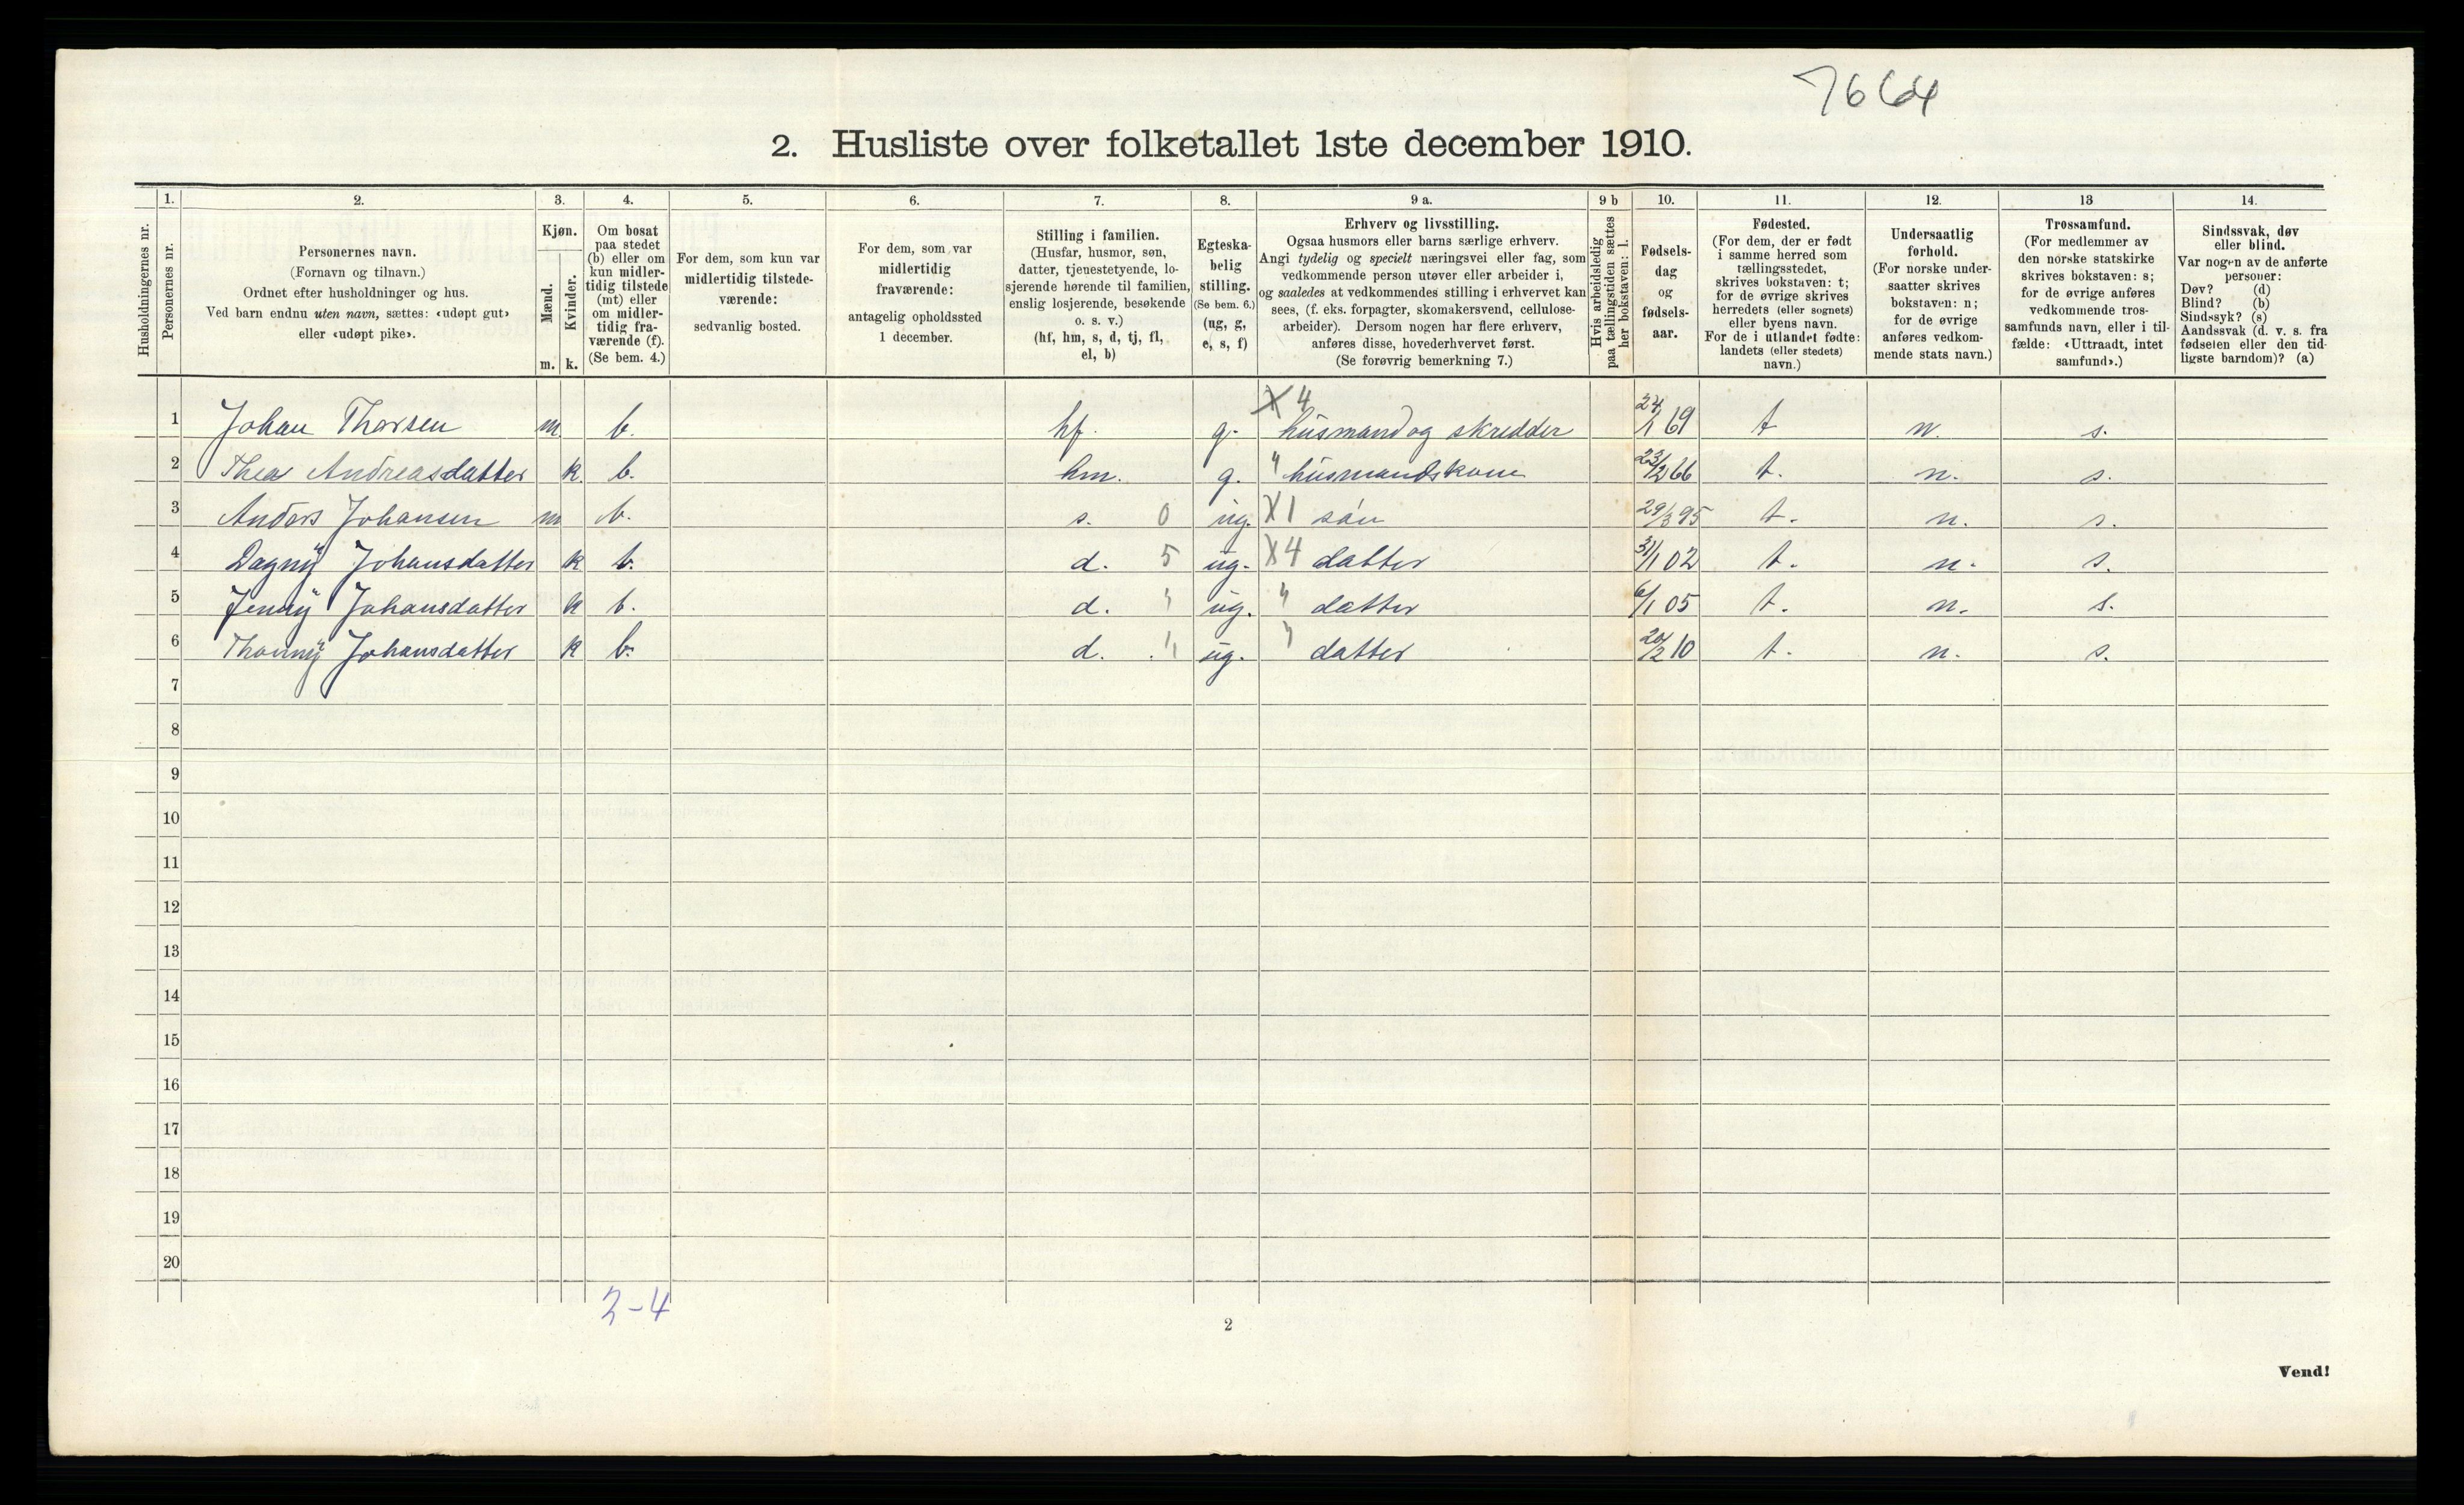 7664
2. Husliste over folketallet 1ste december 1910.
Husholdningernes nr.
1. Personernes nr.
2. Personernes navn.
(Fornavn og tilnavn.)
Ordnet efter husholdninger og hus.
Ved barn endnu uten navn, sættes: «udøpt gut»
eller «udøpt pike».
3. Kjøn.
Mænd. m.
Kvinder. k.
4. Om bosat
paa stedet
(b) eller om
kun midler-
tidig tilstede
(mt) eller
om midler-
tidig fra-
værende (f).
(Se bem. 4.)
5. For dem, som kun var
midlertidig tilstede-
værende:
sedvanlig bosted.
6. For dem, som var
midlertidig
fraværende:
antagelig opholdssted
1 december.
7. Stilling i familien.
(Husfar, husmor, søn,
datter, tjenestetyende, lo-
sjerende hørende til familien,
enslig losjerende, besøkende
o. s. v.)
(hf, hm, s, d, tj, fl,
el, b)
8. Egteska-
belig
stilling.
(Se bem. 6.)
(ug, g,
e, s, f)
9 a. Erhverv og livsstilling.
Ogsaa husmors eller barns særlige erhverv.
Angi tydelig og specielt næringsvei eller fag, som
vedkommende person utøver eller arbeider i,
og saaledes at vedkommendes stilling i erhvervet kan
sees, (f. eks. forpagter, skomakersvend, cellulose-
arbeider). Dersom nogen har flere erhverv,
anføres disse, hovederhvervet først.
(Se forøvrig bemerkning 7.)
9 b Hvis arbeidsledig
paa tællingstiden sættes
her bokstaven: l.
10. Fødsels-
dag
og
fødsels-
aar.
11. Fødested.
(For dem, der er født
i samme herred som
tællingsstedet,
skrives bokstaven: t;
for de øvrige skrives
herredets (eller sognets)
eller byens navn.
For de i utlandet fødte:
landets (eller stedets)
navn.)
12. Undersaatlig
forhold.
(For norske under-
saatter skrives
bokstaven: n;
for de øvrige
anføres vedkom-
mende stats navn.)
13 Trossamfund.
(For medlemmer av
den norske statskirke
skrives bokstaven: s;
for de øvrige anføres
vedkommende tros-
samfunds navn, eller i til-
fælde: «Uttraadt, intet
samfund».)
14. Sindssvak, døv
eller blind.
Var nogen av de anførte
personer:
Døv? (d)
Blind? (b)
Sindssyk? (s)
Aandssvak (d. v. s. fra
fødselen eller den tid-
ligste barndom)? (a)
X 4
1 Johan Thorsen m b. hf. g. husmand og skredder 24/1 69 t n. s.
2 Thea Andreasdatter k. b. hm. g. " husmandskone 23/12 66 t. n. s.
3 Anders Johansen m b. s. 0 ug. X 1 søn 29/3 95 t. n. s.
4 Dagny Johansdatter k b. d. 5 ug. X 4 datter 31/1 02 t. n. s.
5 Jenny Johansdatter k b. d. " ug. " datter 6/1 05 t. n. s.
6 Thonny Johansdatter k b. d. " ug. " datter 20/2 10 t. n. s.
7
8
9
10
11
12
13
14
15
16
17
18
19
20
2-4
2
Vend!